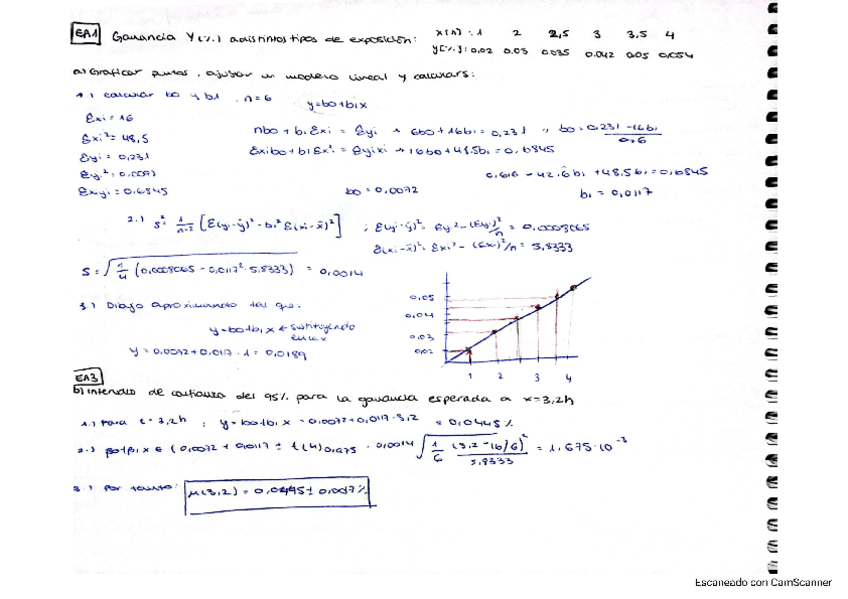 EA1 Ganancia Y(%) a distintos tipos de exposición: x(h): 1 2 2,5 3 3.5 4
y(%): 0.02 0.03 0.035 0.042 0.05 0.054
a) Graficar puntos, ajustar un modelo lineal y calcular s:
1.) calcular b0 y b1, n=6 y=b0+b1x
Σxi = 16
Σxi² = 48,5
Σyi = 0,231
Σxiyi = 0.6845
nb0 + b1Σxi = Σyi → 6b0 + 16b1 = 0,231
Σxib0 + b1Σxi² = Σyixi → 16b0 + 48.5b1 = 0.6845
b0 = 0.0072
b1 = 0,0117
2.) s² = 1/n-2 [Σ(yi-ȳ)² - b1² Σ(xi-x̄)²] ; Σ(yi-ȳ)² = Σy² - (Σy)²/n = 0,0008065
Σ(xi-x̄)² = Σxi² - (Σxi)²/n = 5,8333
S = √1/4 (0,0008065 - 0,0117² · 5.8333) = 0,0014
3.) Dibujo aproximando tal que:
y = b0+b1x ← sustituyendo
y = 0.0072+0.0117 · 1 = 0,0189
0,05
0,04
0,03
0,02
1 2 3 4
EA3
b) Intervalo de confianza del 95% para la ganancia esperada a x=3,2h
1.) Para t=3,2h ; y = b0+b1x = 0.0072+0,0117·3,2 = 0,0445%
2.) β0+β1x ∈ (0,0072 + 0,0117 ± t(4)0,975 · 0,0014 √1/6 (3,2 - 16/6)²/5,8333 = 1,675·10⁻³
3.) Por tanto: μ(3,2) = 0,0445 ± 0,0017%
Escaneado con CamScanner